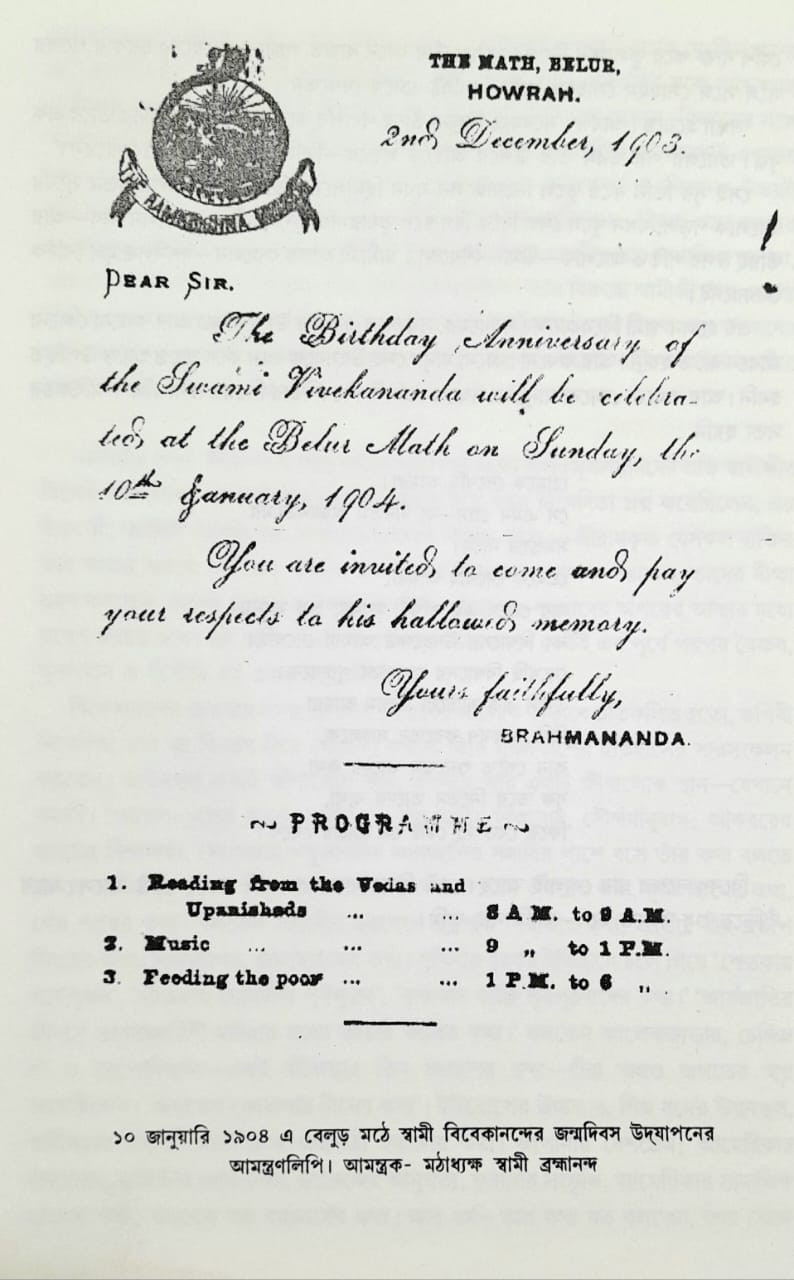 THE RAMKRISHNA
THE MATH, BELUR,
HOWRAH.
2nd December, 1903.
DEAR SIR.
The Birthday Anniversary of
the Swami Vivekananda will be celebra-
ted at the Belur Math on Sunday, the
10th January, 1904.
You are invited to come and pay
your respects to his hallowed memory.
Yours faithfully,
BRAHMANANDA.
~ PROGRAMME ~
1. Reading from the Vedas and
Upanishads ... ... 8 A.M. to 9 A.M.
2. Music ... ... ... 9 „ to 1 P.M.
3. Feeding the poor ... ... 1 P.M. to 6 „
১০ জানুয়ারি ১৯০৪ এ বেলুড় মঠে স্বামী বিবেকানন্দের জন্মদিবস উদ্‌যাপনের
আমন্ত্রণলিপি। আমন্ত্রক- মঠাধ্যক্ষ স্বামী ব্রহ্মানন্দ